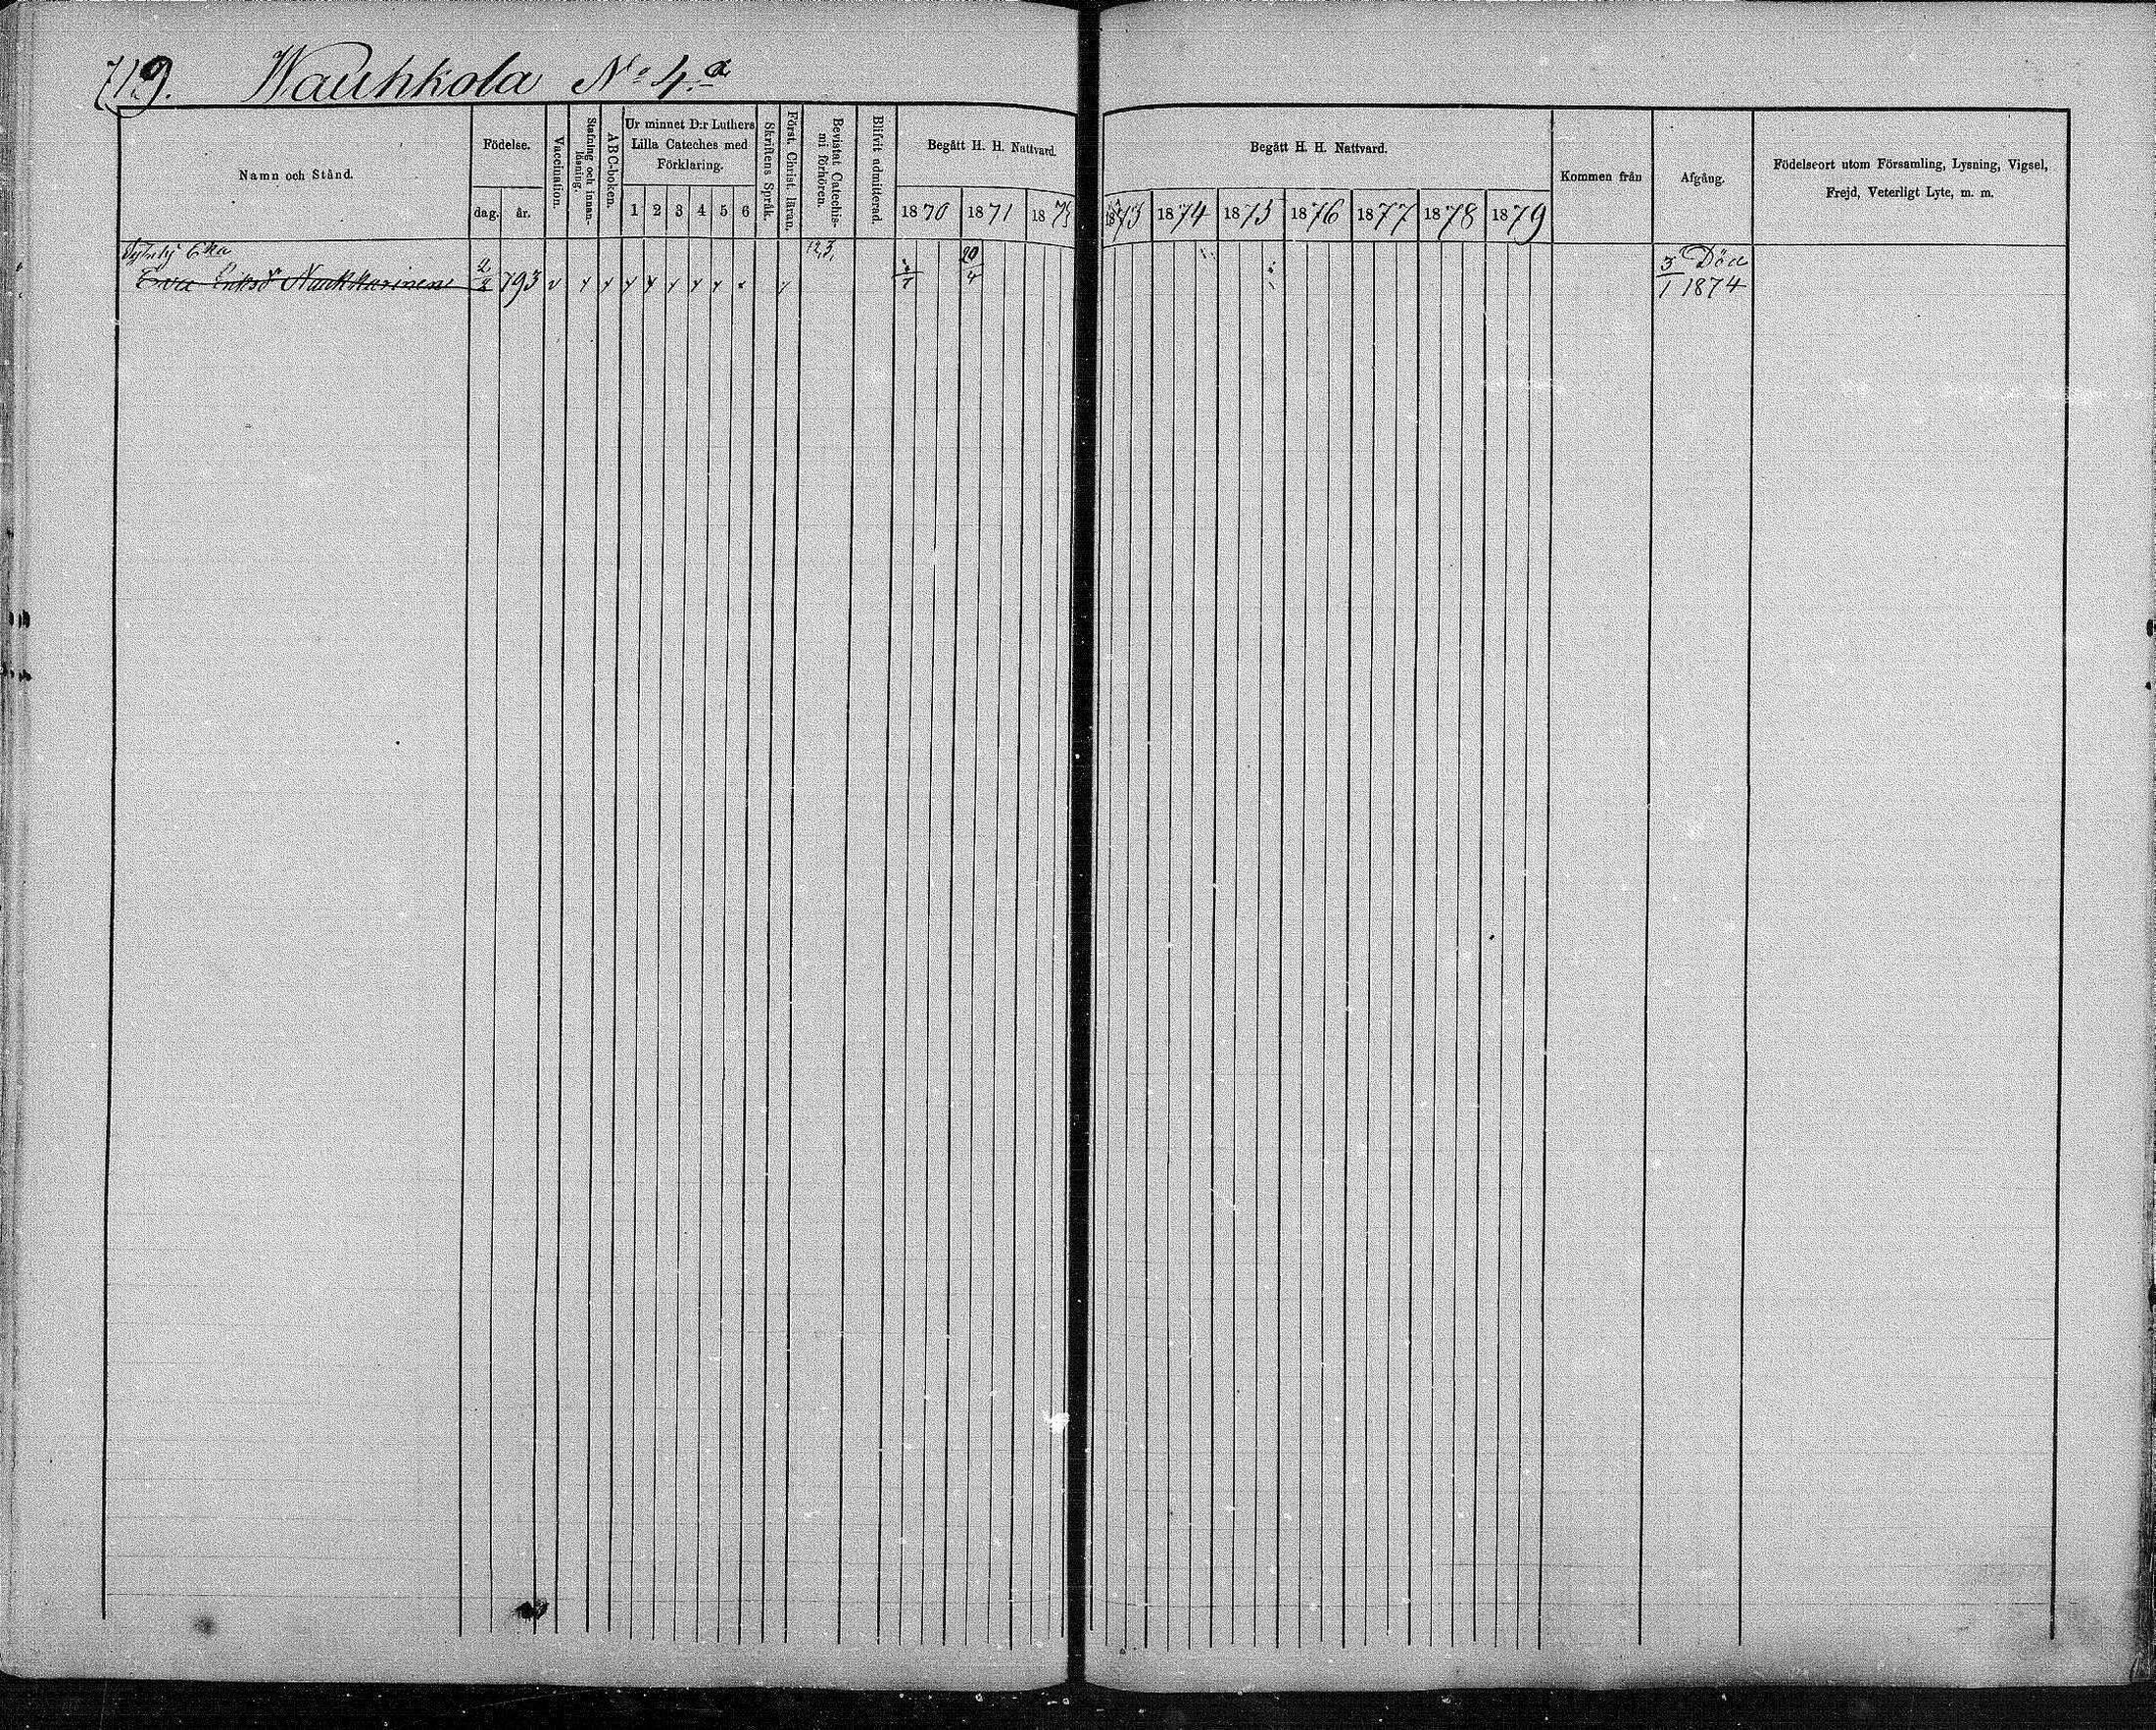 719. Wauhkola No 4.a
Namn och Stånd.
Födelse.
dag. år.
Vaccination.
Stafning och innanläsning.
ABC-boken.
Ur minnet D:r Luthers
Lilla Cateches med
Förklaring.
1 2 3 4 5 6
Skriftens Språk.
Först. Christ. läran.
Bevistat Catechismi förhören.
Blifvit admitterad.
Begått H. H. Nattvard.
1870 1871 187
Begått H. H. Nattvard.
1873 1874 1875 1876 1877 1878 1879
Kommen från
Afgång.
Födelseort utom Församling, Lysning, Vigsel,
Frejd, Veterligt Lyte, m. m.
Enka
Eva Eriksd Naukkarinen 793
20/4
Död
3/1 1874